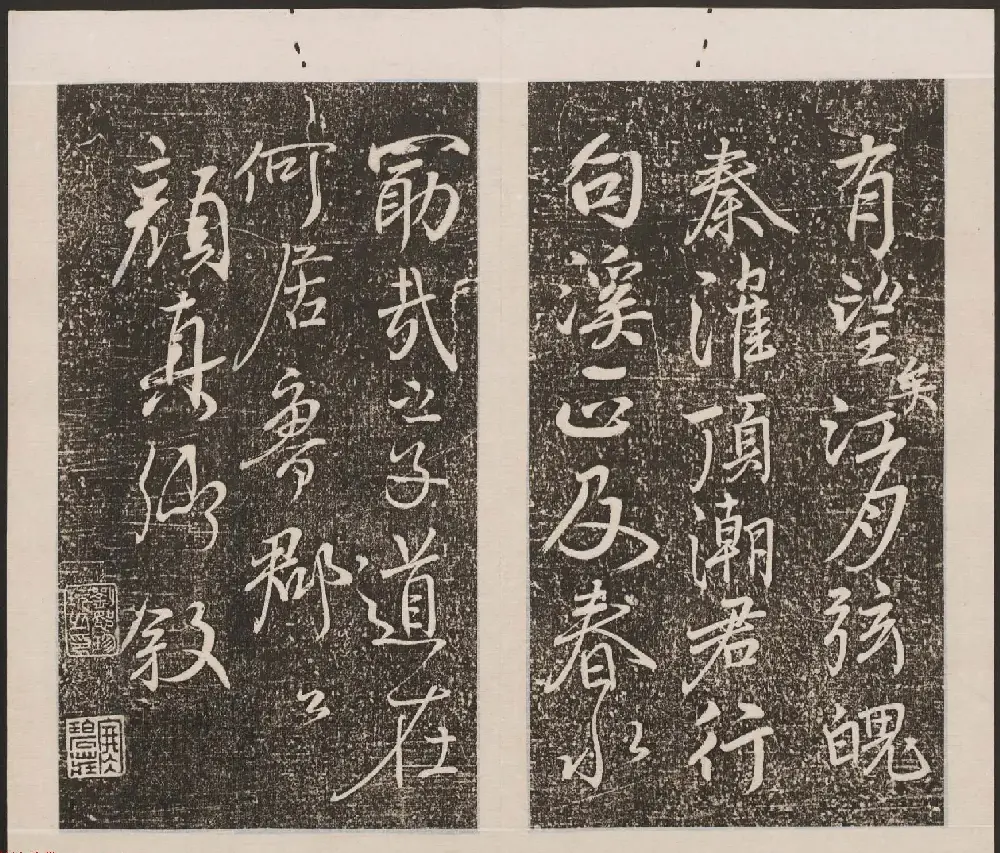 有望矣江月弦魄
秦淮頂潮君行
句溪正及春水
勗哉之子道在
何居魯郡公
顏真卿敘